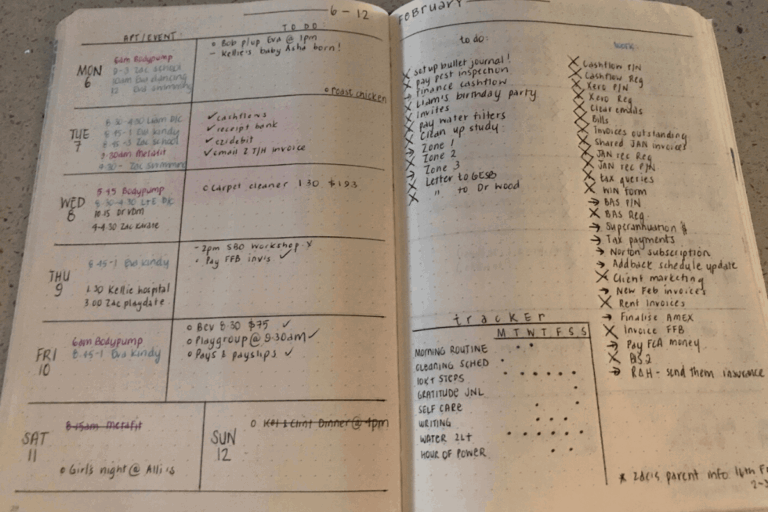 6 - 12
APT/EVENT:
TO DO:
MON
6
6am Bodypump
Zac school
Eva dancing
Zac swimming
o Bob p/up Eva @ 1pm
- Kellie's baby Asha born!
o roast chicken
TUE
7
Eva kindy
Zac School
9:30am Metafit
Zac swimming
✓ cashflows
✓ receipt bank
✓ ezidebit
✓ email 2 T/H invoice
WED
8
5:45 Bodypump
10:15 Dr VDM
4-4:30 Zac Karate
o Carpet cleaner 1:30 $193
THU
9
8:45-1 Eva kindy
1:30 Kellie hospital
3:00 Zac playdate
- 2pm SBO Workshop X
• Pay FFB invis ✓
FRI
10
6am Bodypump
8:45-1 Eva Kindy
o BCV 8:30 $75 ✓
o Playgroup @ 9:30am ✓
o Pays & payslips ✓
SAT
11
8:15am Metafit
o Girls night @ Alli's
SUN
12
o Kel & Clint Dinner @ 4pm
FEBRUARY
to do:
X set up bullet journal!
X pay pest inspection
X Finance cashflow
X Liam's birthday party
X invites
X pay water filters
X Clean up study:
Zone 1
Zone 2
Zone 3
X Letter to
X " to Dr Wood
WORK
X Cashflow P/N
X Cashflow Req
X Xero P/N
X Xero Req
X Clear emails
X Bills
X Invoices outstanding
X Shared JAN invoices
X JAN rec Req
X JAN rec P/N
X tax queries
X WIN form
→ BAS P/N
X BAS Req
→ Superannuation
→ Tax payments
→ Norton subscription
→ Addback schedule update
X Client marketing
→ New Feb invoices
X Rent Invoices
→ Finalise AMEX
X Invoice FFB
→ Pay FCA money
X
→ R&H - send them insurance
tracker
M T W T F S S
MORNING ROUTINE
CLEANING SCHED
10K+ STEPS
GRATITUDE JNL
SELF CARE
WRITING
WATER 2L+
HOUR OF POWER
* Zac's parent info 16th